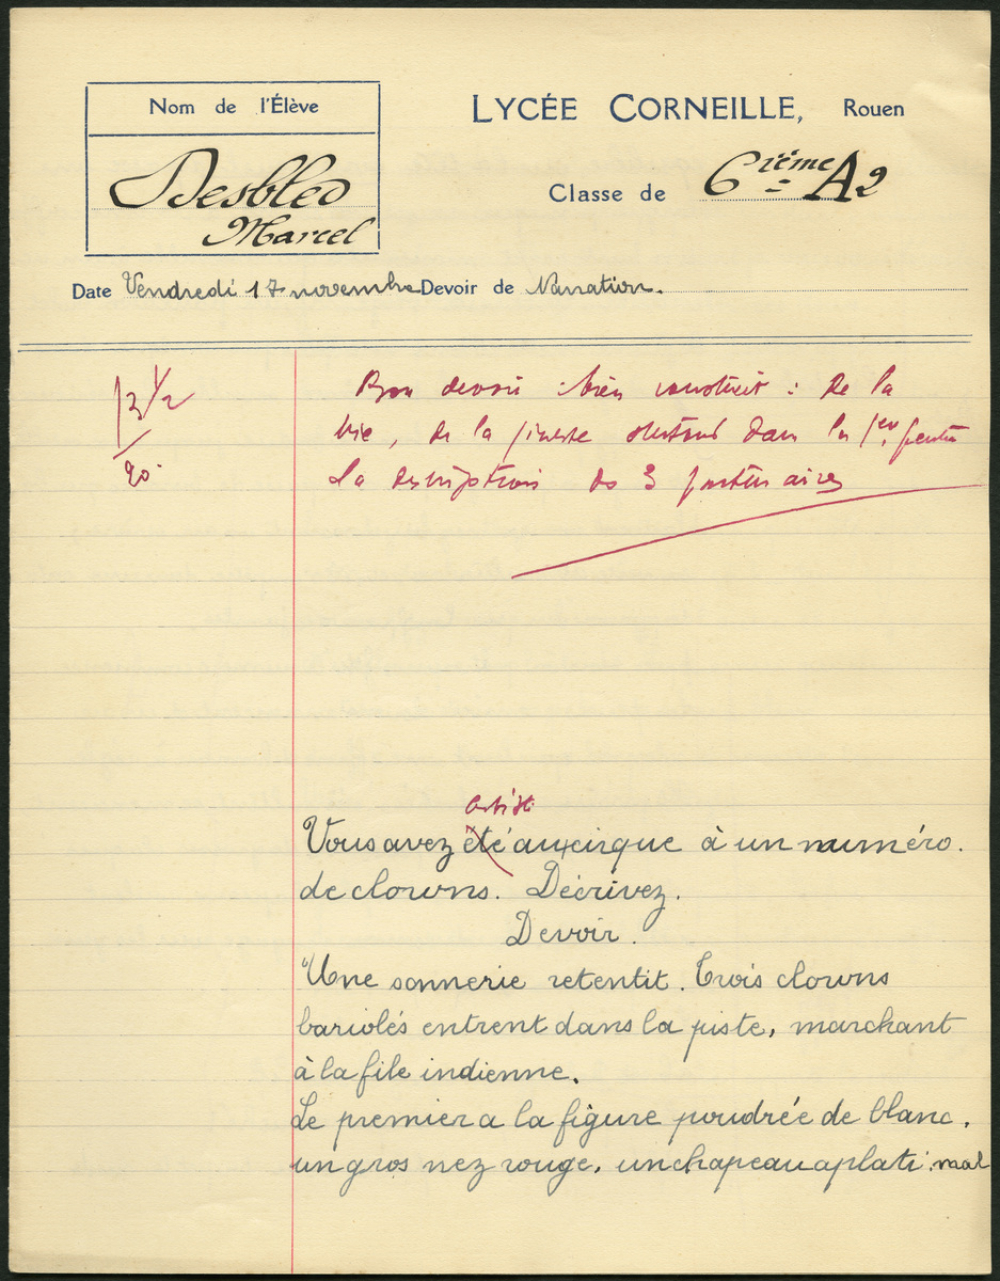 Nom de l'Élève
Desbled
Marcel
LYCÉE CORNEILLE, Rouen
Classe de 6ième A2
Date Vendredi 17 novembre Devoir de Narration.
13 1/2
20
Bon devoir bien construit : De la
vie, de la finesse surtout dans la 1er partie
la description des 3 partenaires
assisté
Vous avez été au cirque à un numéro.
de clowns. Décrivez.
Devoir.
"Une sonnerie retentit. Trois clowns
bariolés entrent dans la piste, marchant
à la file indienne.
Le premier a la figure poudrée de blanc,
un gros nez rouge, un chapeau aplati mal